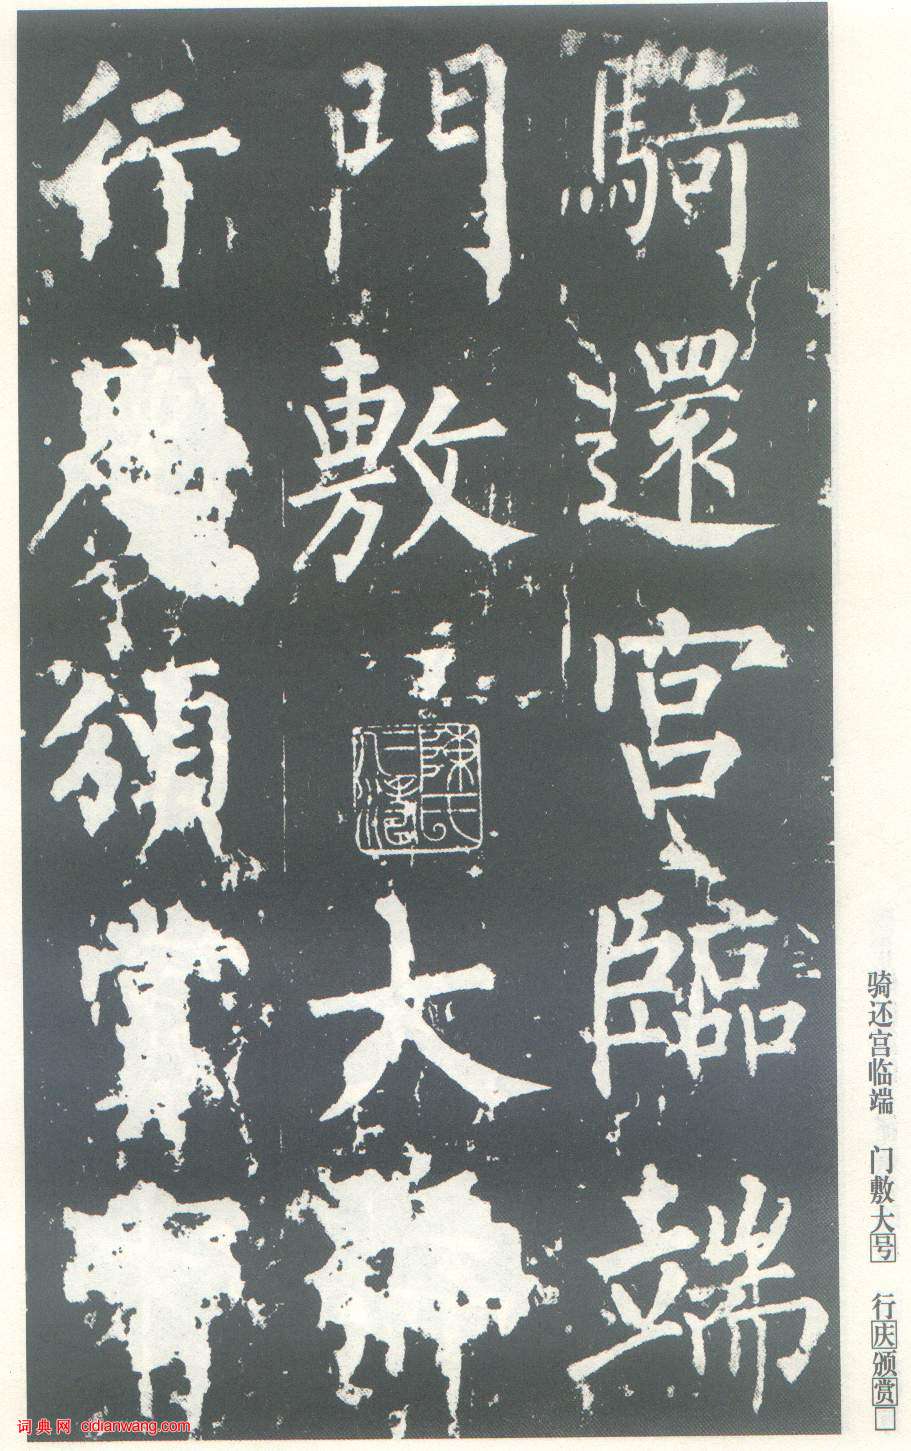 騎還宮臨端
門敷大
行頒賞
陳氏
骑还宫临端 门敷大号 行庆颁赏□
词典网 cidianwang.com